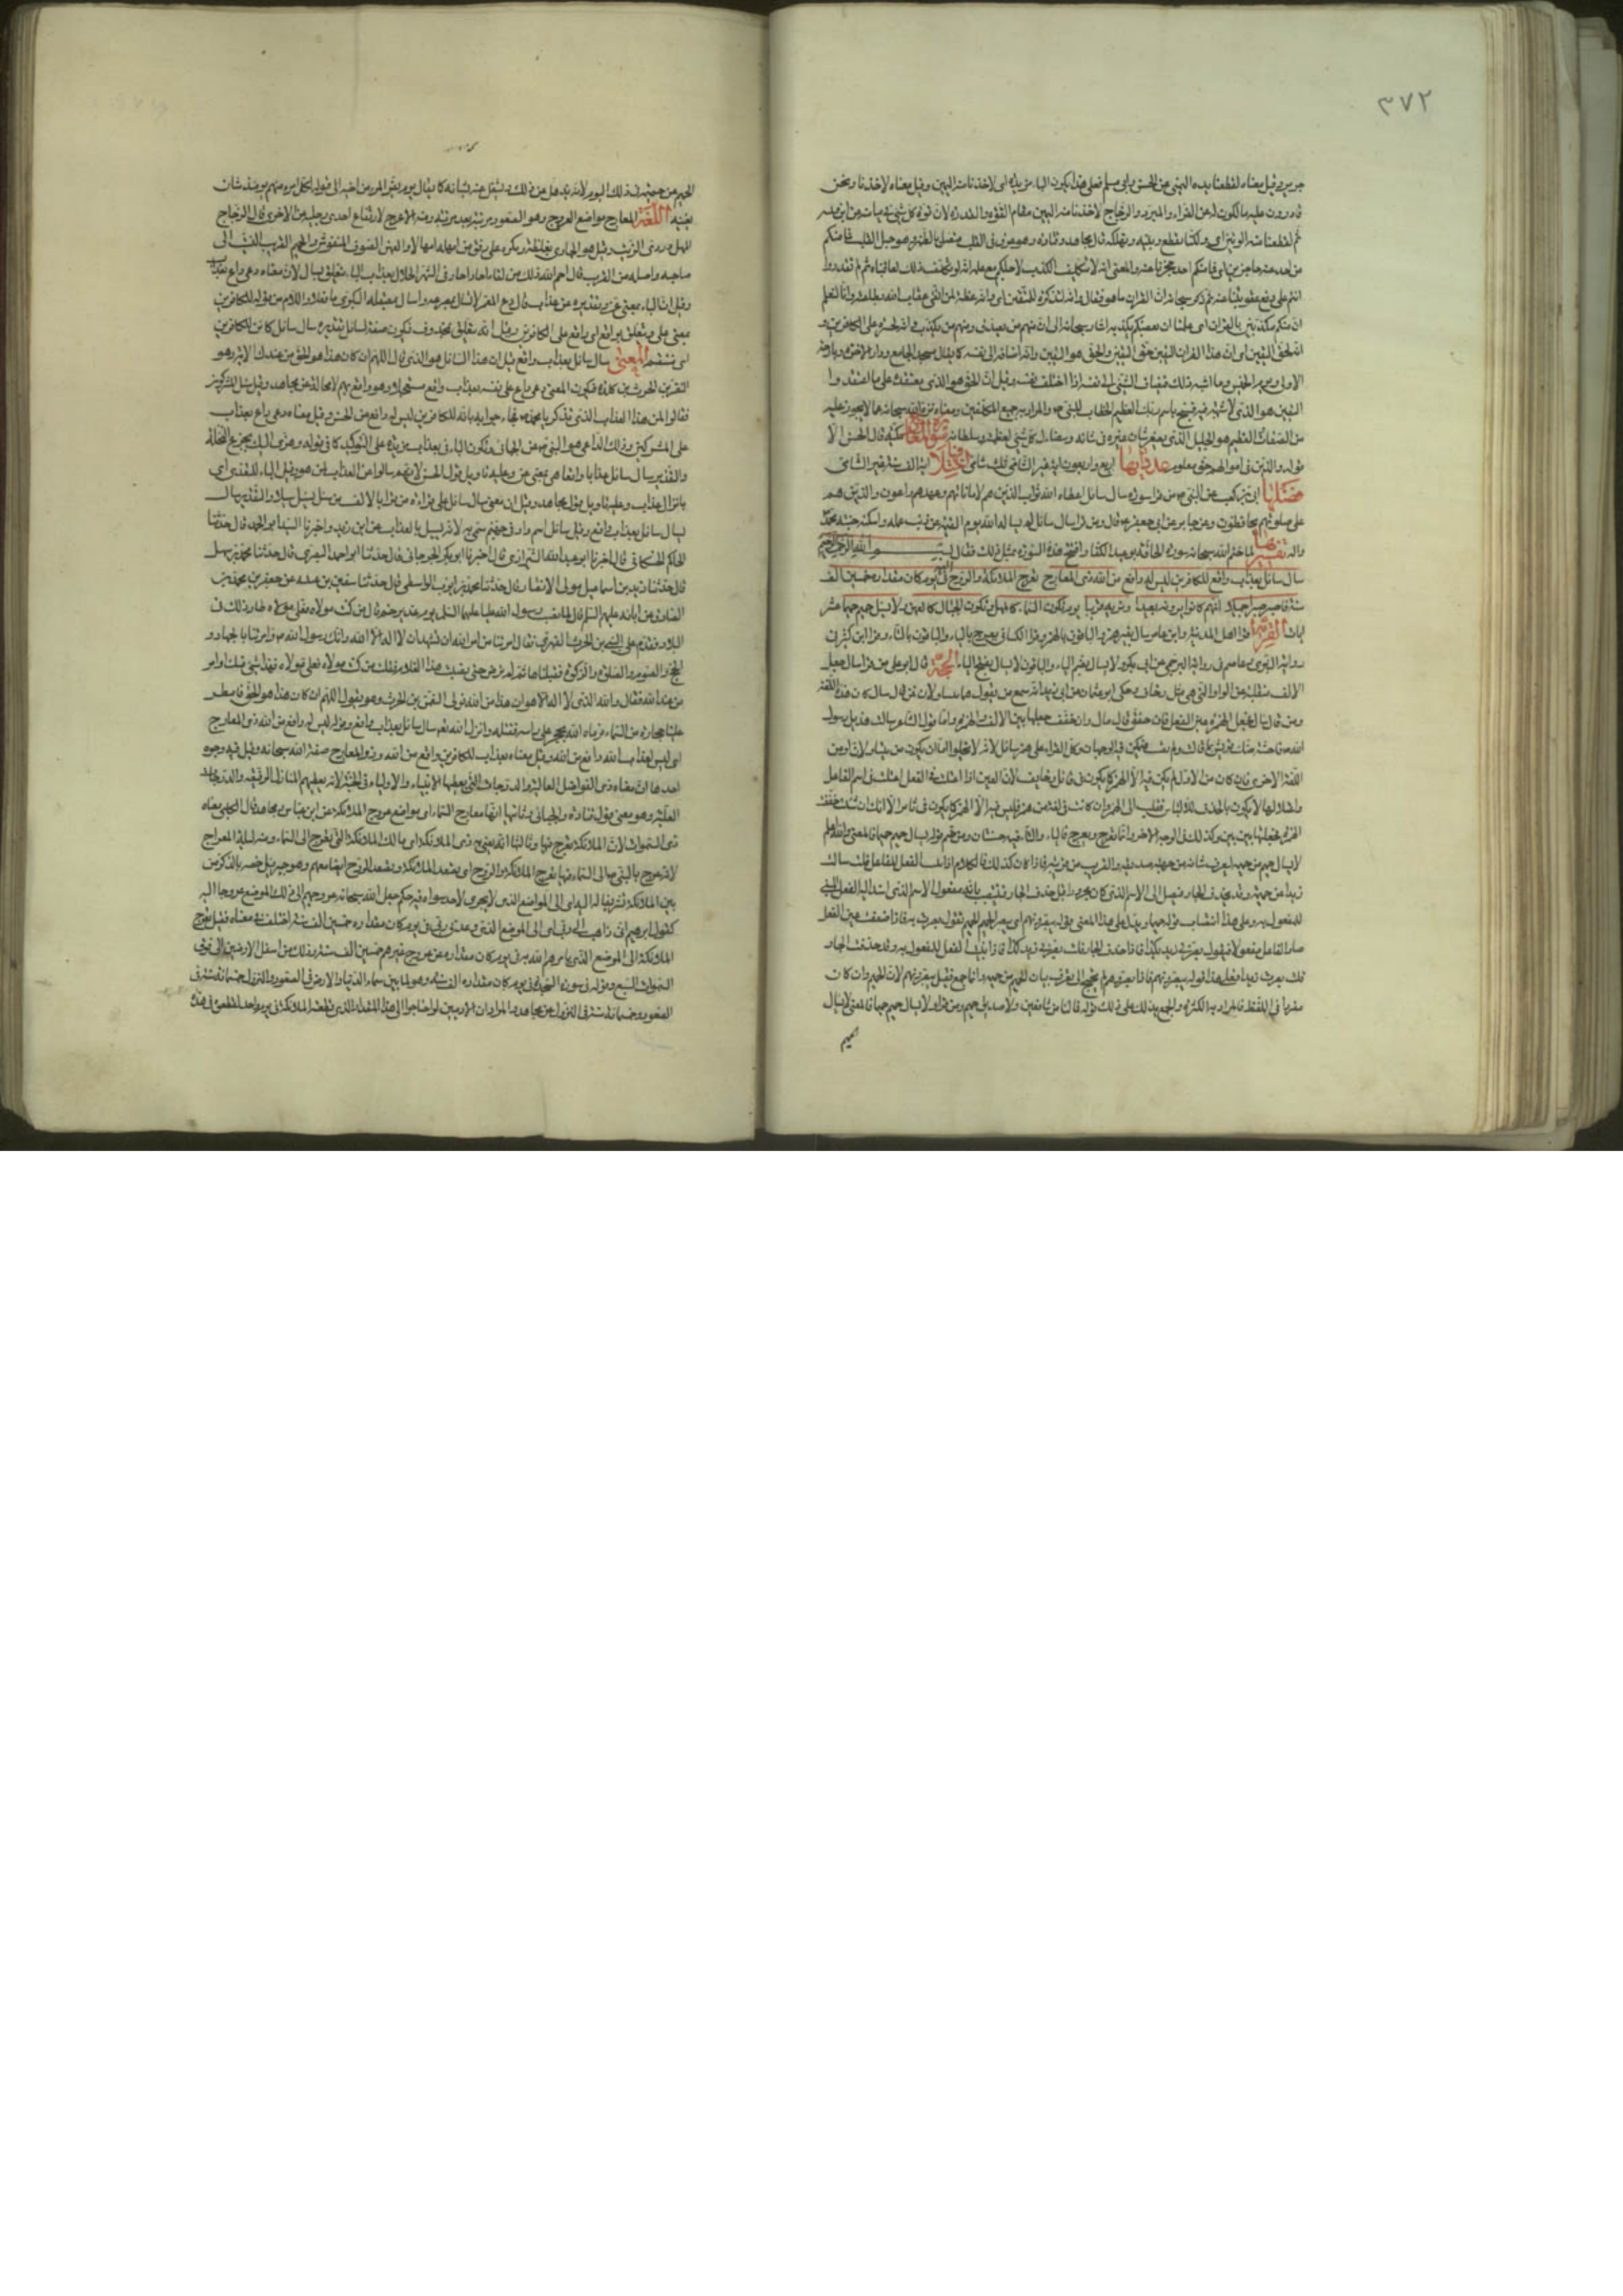 ٣٧٢
جرير وقيل معناه لقطعنا يده اليمنى عن الحسن وابي مسلم فعلى هذا يكون الباء مزيدة اى لاخذنا منه اليمين وقيل معناه لاخذنا ونحن
قادرون عليه مالكون له عن الفراء والمبرد والزجاج لاخذنا منه اليمين مقام القوة والقدرة لان قوة كل شئ في ميامنه
ثم لقطعنا منه الوتين اى ولكنا نقطع وتينه ونهلكه قال مجاهد وقتادة وهو عرق في القلب متصل بالظهر وهو حبل القلب فما منكم
من احد عنه حاجزين اى فما منكم احد يحجزنا عنه والمعنى انه لا يتكلف الكذب لاجلكم مع علمه انه لو تكلف ذلك لعاقبناه ثم لم تقدروا
انتم على دفع عقوبتنا عنه ثم ذكر سبحانه ان القران ما هو فقال وانه لتذكرة للمتقين اى وانه عظة لمن اتقى عقاب الله بطاعته وانا لنعلم
ان منكم مكذبين بالقران اى علمنا ان بعضكم يكذب به اشار سبحانه الى ان منهم من يصدق ومنهم من يكذب وانه لحسرة على الكافرين
وانه لحق اليقين اى ان هذا القران لليقين حق اليقين والحق هو اليقين وانه اضافه الى نفسه كما يقال مسجد الجامع ودار الاخرة وبارحة
الاولى ويوم الخميس وما اشبه ذلك فيضاف الشئ الى نفسه اذا اختلف لفظه وقيل ان الحق هو الذى معتقده على ما اعتقده و
اليقين هو الذى لا شبهة فيه فسبح باسم ربك العظيم الخطاب للنبى ص والمراد به جميع المكلفين ومعناه نزه الله سبحانه عما لا يجوز عليه
من الصفات العظيم هو الجليل الذى يصغر شان غيره في شانه ويتضاءل كل شئ لعظمته وسلطانه سورة المعارج مكية قال الحسن الا
قوله والذين في اموالهم حق معلوم عدد آيها اربع واربعون اية غير الشامى ثلث شامى اختلافها اية الف سنة غير الشامى
فضلها ابى بن كعب عن النبى ص من قرا سورة سال سائل اعطاه الله ثواب الذين هم لاماناتهم وعهدهم راعون والذين هم
على صلوتهم يحافظون وعن جابر عن ابى جعفر ع قال ومن قرا سال سائل لم يساله الله يوم القيمة عن ذنب عمله واسكنه جنته مع محمد
واله تفسيرها لما ختم الله سبحانه سورة الحاقة بوعيد الكفار افتتح هذه السورة بمثل ذلك فقال بسم الله الرحمن الرحيم
سال سائل بعذاب واقع للكافرين ليس له دافع من الله ذى المعارج تعرج الملائكة والروح اليه في يوم كان مقداره خمسين الف
سنة فاصبر صبرا جميلا انهم يرونه بعيدا ونريه قريبا يوم تكون السماء كالمهل وتكون الجبال كالعهن ولا يسئل حميم حميما عشر
ايات القراءة قرا اهل المدينة وابن عامر سال بغير همز والباقون بالهمز وقرا الكسائى يعرج بالياء والباقون بالتاء وقرا ابن كثير في
رواية البزى وعاصم في رواية البرجمى عن ابى بكر ولا يسال بضم الياء والباقون لا يسال بفتح الياء الحجة قال ابو على من قرا سال جعل
الالف منقلبة عن الواو التى هى مثل وخاف وحكى ابو عثمان عن ابى زيد انه سمع من يقول هما يتساولان فمن قال سال كان هذه اللغة
ومن قال سال فجعل الهمزة عين الفعل فان حقق قال سال وان خفف جعلها بين الالف والهمزة واما قول الشاعر سالت هذيل رسول
الله فاحشة
اللغة الاخرى فان كان من الاولى لم يكن فيه الا الهمز كما يكون في قائل وخائف لان العين اذا اعتلت في الفعل اعتلت في اسم الفاعل
واعتلالها لا يكون بالحذف للالتباس فتقلب الى الهمز وان كانت في لغة من همز فليس فيه الا الهمز كما يكون في ثائر الا انك ان شئت خففت
الهمزة فجعلتها بين بين وكذلك في الوجه الاخر واما تعرج ويعرج فالياء والتاء فيه حسنتان ومن ضم قوله يسال حميم حميما فالمعنى والله اعلم
لا يسال حميم عن حميمه ليعرف شانه من جهته كما يتعرف خبر الصديق من جهة صديقه والقريب من قريبه فاذا كان كذلك فالكلام اذا بنيت الفعل للفاعل قلت سالت
زيدا عن حميمه
للمفعول به وعلى هذا انتصاب قوله حميما ويدل على هذا المعنى قوله يبصرونهم اى يبصر الحميم الحميم تقول بصرت به فاذا ضعفت عين الفعل
صار الفاعل مفعولا فتقول بصرنى زيد بكذا فاذا حذفت الجار قلت بصرنى زيد كذا فاذا بنيت الفعل للمفعول به وقد حذفت الجار
قلت بصرت زيدا وعلى هذا قوله يبصرونهم فاذا بصروهم لم يحتج الى تعرف شان الحميم من حميمه وانما جمع فقيل يبصرونهم لان الحميم وان كان
مفردا في اللفظ فالمراد به الكثرة والجمع يدلك على ذلك قوله فما لنا من شافعين ولا صديق حميم ومن قرا ولا يسال حميم حميما فالمعنى لا يسال
حميم
الحميم عن حميمه في ذلك اليوم لانه يذهل عن ذلك ويشتغل عنه بشانه كما يقال يوم يفر المرء من اخيه الى قوله لكل امرئ منهم يومئذ شان
يغنيه اللغة المعارج مواضع العروج وهو الصعود مرتبة بعد مرتبة ومنه الاعرج لارتفاع احدى رجليه عن الاخرى قال الزجاج
المهل دردى الزيت وقيل هو الجارى بغلظة وعكرة على رفق من امهله امهالا والعهن الصوف المنفوش والحميم القريب النسب الى
صاحبه واصله من القرب قال احم الله ذلك من لقاء احاد احاد في الشهر الحلال بعذاب الباء يتعلق بسال لان معناه دعا داع بعذاب
وقيل ان الباء بمعنى عن وتقديره عن عذاب
بمعنى على ويتعلق بواقع اى واقع على الكافرين وقيل انه يتعلق بمحذوف فيكون صفة لسائل تقديره سال سائل كائن للكافرين
اى منهم المعنى سال سائل بعذاب واقع قيل ان هذا السائل هو الذى قال اللهم ان كان هذا هو الحق من عندك الاية وهو
النضر بن الحرث بن كلدة فيكون المعنى دعا داع على نفسه بعذاب واقع مستعجلا له وهو واقع بهم لا محالة عن مجاهد وقيل سال المشركون
فقالوا لمن هذا العذاب الذى تذكر يا محمد ص فجاء جوابه بانه للكافرين ليس له دافع عن الحسن وقيل معناه دعا داع بعذاب
على المشركين وذلك الداعى هو النبى ص عن الجبائى وتكون الباء في بعذاب مزيدة على التوكيد كما في قوله وهزى اليك بجذع النخلة
والتقدير سال سائل عذابا واقعا وقيل هى بمعنى عن وعليه تاويل قول الحسن لانهم سالوا عن العذاب لمن هو وقيل الباء للتعدى اى
بانزال عذاب وعليه تاويل قول مجاهد وقيل ان معنى سال سائل على قراءة من قرا بالالف من سال يسيل سيلا والتقدير سال
سيل سائل بعذاب واقع وقيل سائل اسم واد في جهنم سمى به لانه يسيل بالعذاب عن ابن زيد واخبرنا السيد ابو الحمد قال حدثنا
الحاكم الحسكانى قال اخبرنا ابو عبد الله الشيرازى قال اخبرنا ابو بكر الجرجانى قال حدثنا ابو احمد البصرى قال حدثنا محمد بن سهل
قال حدثنا زيد بن اسماعيل مولى الانصار قال حدثنا محمد بن ايوب الواسطى قال حدثنا سفين بن عيينة عن جعفر بن محمد
الصادق عن ابائه عليهم السلم قال لما نصب رسول الله عليا عليهما السلم يوم غدير خم وقال من كنت مولاه فعلى مولاه طار ذلك في
البلاد فقدم على النبى ص النعمان بن الحرث الفهرى فقال امرتنا من امر الله ان نشهد ان لا اله الا الله وانك رسول الله ص وامرتنا بالجهاد و
الحج والصوم والصلوة والزكوة فقبلناها ثم لم ترض حتى نصبت هذا الغلام فقلت من كنت مولاه فعلى مولاه فهذا شئ منك او امر
من عند الله فقال والله الذى لا اله الا هو ان هذا من الله فولى النعمن بن الحرث وهو يقول اللهم ان كان هذا هو الحق فامطر
علينا حجارة من السماء فرماه الله بحجر على راسه فقتله وانزل الله تعم سال سائل بعذاب واقع وقوله ليس له دافع من الله ذى المعارج
اى ليس لعذاب الله دافع من الله وقيل معناه بعذاب للكافرين واقع من الله وذو المعارج صفة الله سبحانه وقيل فيه وجوه
احدها ان معناه ذى الفواضل العالية والدرجات التى يعطيها الانبياء والاولياء في الجنة لانه يعطيهم المنازل الرفيعة والدرجات
العلية وهو معنى قول قتادة والجبائى وثانيها انها معارج السماء اى مواضع عروج الملائكة عن ابن عباس ومجاهد قال الكلبى معناه
ذى السموات لان الملائكة تعرج فيها وثالثها انه بمعنى ذى الملائكة اى مالك الملائكة التى تعرج الى السماء ومنه ليلة المعراج
لانه عرج بالنبى ص الى السماء فيها تعرج الملائكة والروح اى تصعد الملائكة ويصعد الروح ايضا معهم وهو جبريل خصه بالذكر من
بين الملائكة تشريفا له اليه اى الى الموضع الذى لا يجرى لاحد سواه فيه حكم جعل الله سبحانه عروجهم الى ذلك الموضع عروجا اليه
كقول ابرهيم انى ذاهب الى ربى اى الى الموضع الذى وعدنى ربى في يوم كان مقداره خمسين الف سنة اختلف في معناه فقيل تعرج
الملائكة الى الموضع الذى يامرهم الله به في يوم كان مقداره من عروج غيرهم خمسين الف سنة وذلك من اسفل الارضين الى فوق
السموات السبع وقوله في سورة السجدة في يوم كان مقداره الف سنة وهو لما بين سماء الدنيا والارض في الصعود والنزول خمسمائة سنة في
الصعود وخمسمائة سنة في النزول عن مجاهد والمراد ان الادميين لو احتاجوا الى قطع هذا المقدار الذى قطعته الملائكة في يوم واحد لقطعوه في هذه